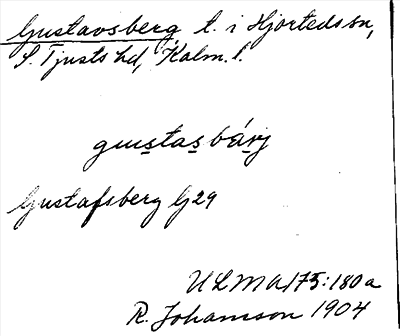 Gustavsberg t. i Hjorteds sn,
S. Tjusts hd, Kalm. l.
gustasbärj
Gustafsberg Gj 29
ULMA 175:180a
R. Johansson 1904